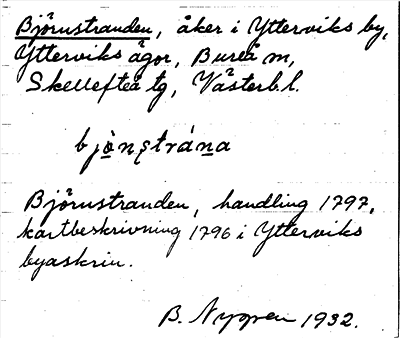 Björnstranden, åker i Ytterviks by,
Ytterviks ägor, Bureå sn,
Skellefteå tg, Västerb.l.
bjö̀nstrána
Björnstranden, handling 1797,
kartbeskrivning 1796 i Ytterviks
byaskrin.
B. Nygren 1932.